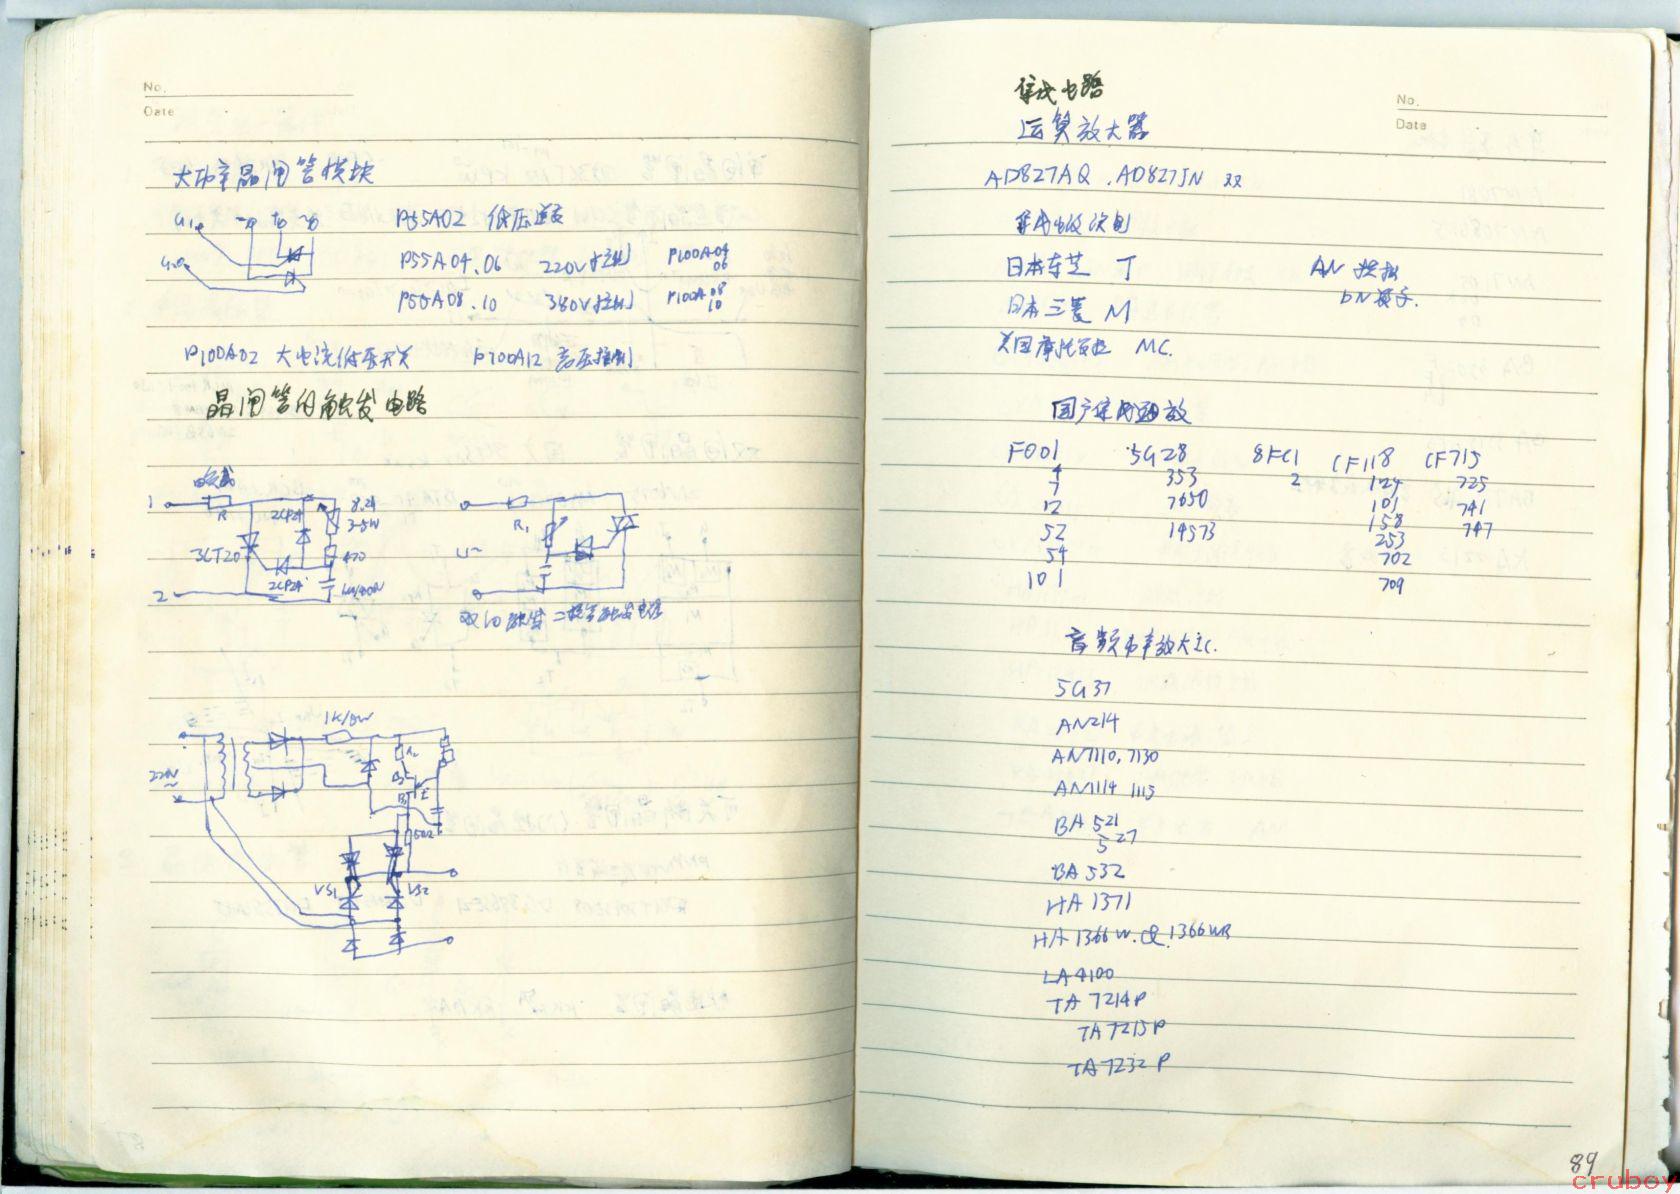 No.
Date
大功率晶闸管模块
G1
P55A02 低压
P55A04.06 220V控制 P100A04
06
P55A08.10 380V控制 P100A08
10
P100A02 大电流低压开关 P100A12 高压控制
晶闸管的触发电路
负载
1
R
2CP24
3-5W
3CT20
470
2CP24
2
R1
U~
双向触发二极管触发电路
1K/8W
220V
~
R2
B2
E
B1
VS1
VS2
集成电路
No.
Date
运算放大器
AD827AQ . AD827JN 双
日本东芝 T
AN 模拟
DN 数字.
日本三菱 M
美国摩托罗拉 MC.
国产集成运放
F001 5G28 8FC1 CF118 CF715
4 353 2 124 725
7 7650 101 741
12 158 747
52 14573 253
54 702
101 709
音频功率放大IC.
5G37
AN214
AN7110, 7130
AN7114 7115
BA 521
527
BA 532
HA 1371
HA 1366W. & 1366WR
LA 4100
TA 7214P
TA 7215P
TA 7232P
89
cruboy